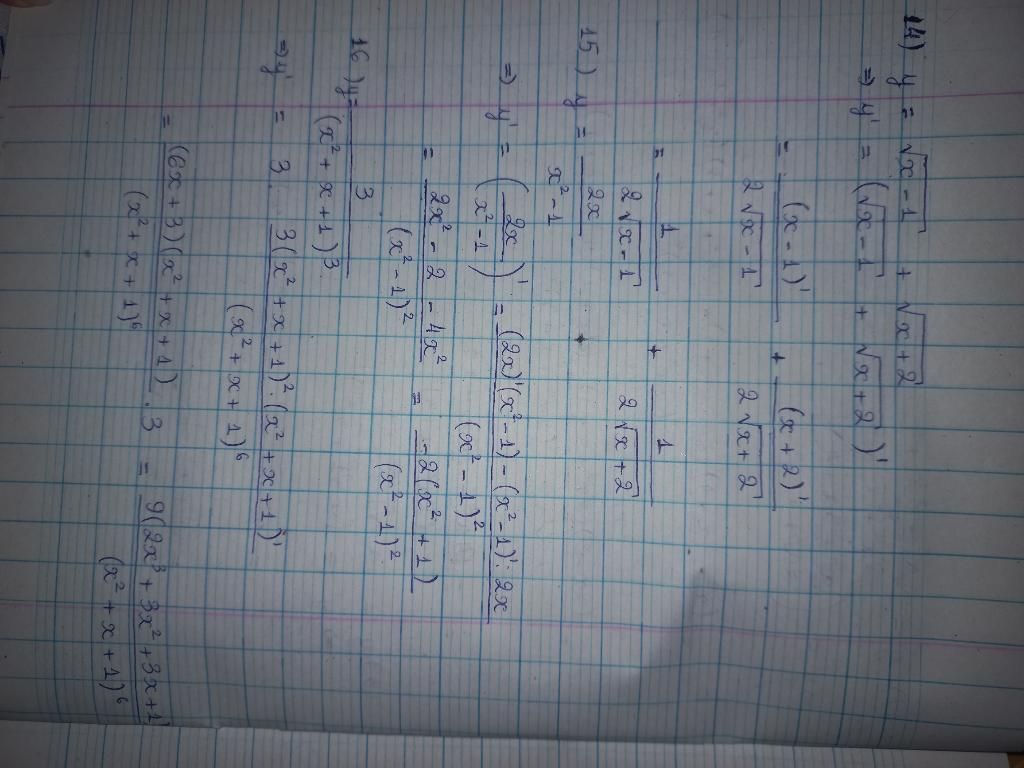 14) y = √(x-1) + √(x+2)
=> y' = (√(x-1) + √(x+2))'
= (x-1)' / 2√(x-1) + (x+2)' / 2√(x+2)
= 1 / 2√(x-1) + 1 / 2√(x+2)
15) y = 2x / x² - 1
=> y' = (2x / x²-1)' = (2x)'(x²-1) - (x²-1)'. 2x / (x²-1)²
= 2x² - 2 - 4x² / (x²-1)² = -2(x²+1) / (x²-1)²
16) y = 3 / (x² + x + 1)³
=> y' = 3. 3(x²+x+1)².(x²+x+1)' / (x²+x+1)⁶
= (6x+3)(x²+x+1) / (x²+x+1)⁶ . 3 = 9(2x³+3x²+3x+1) / (x²+x+1)⁶